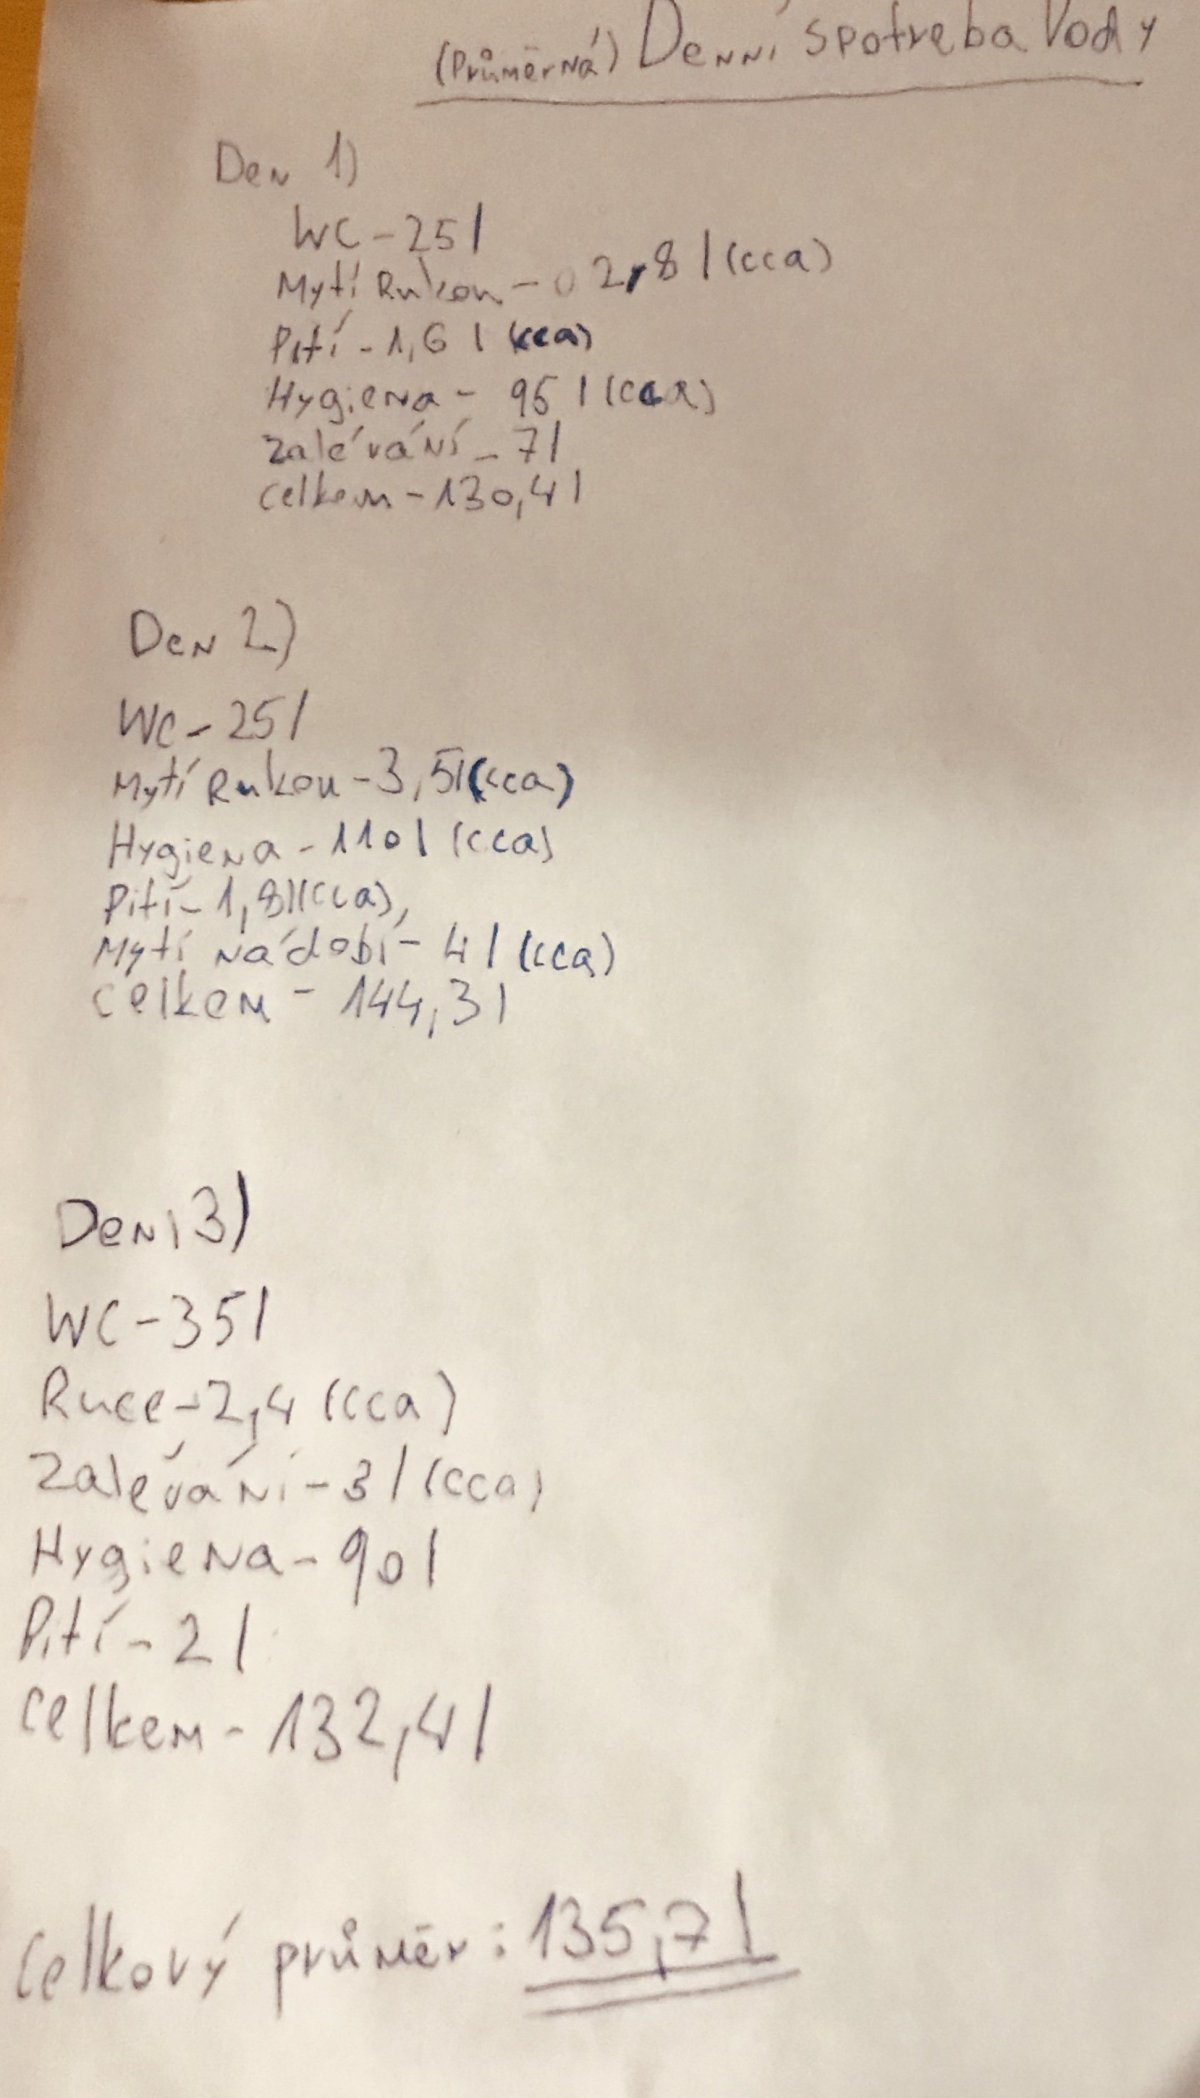 (Průměrná) Denní spotřeba Vody
Den 1)
WC - 25 l
Mytí Rukou - 0 2,8 l (cca)
Pití - 1,6 l (cca)
Hygiena - 95 l (cca)
Zalévání - 7 l
Celkem - 130,4 l
Den 2)
WC - 25 l
Mytí Rukou - 3,5 l (cca)
Hygiena - 110 l (cca)
Pití - 1,8 l (cca),
Mytí nádobí - 4 l (cca)
Celkem - 144,3 l
Den 3)
WC - 35 l
Ruce - 2,4 (cca)
Zalévání - 3 l (cca)
Hygiena - 90 l
Pití - 2 l
Celkem - 132,4 l
Celkový průměr: 135,7 l